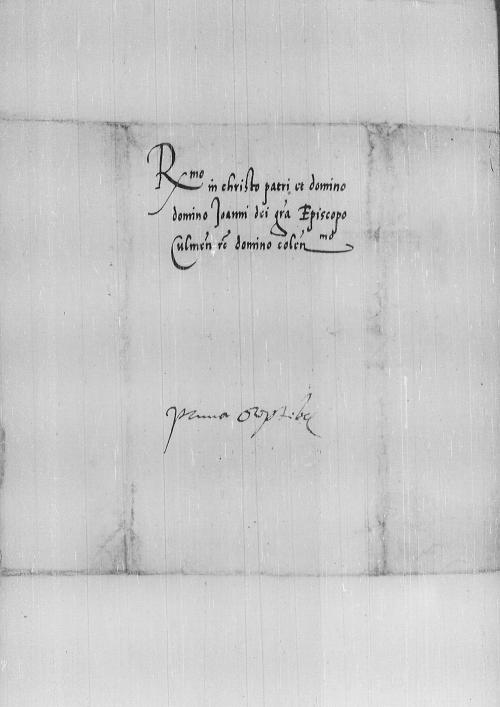 Rmo in christo patri et domino
domino Joanni dei gra Episcopo
Culmen re domino colen mo
prima Octob